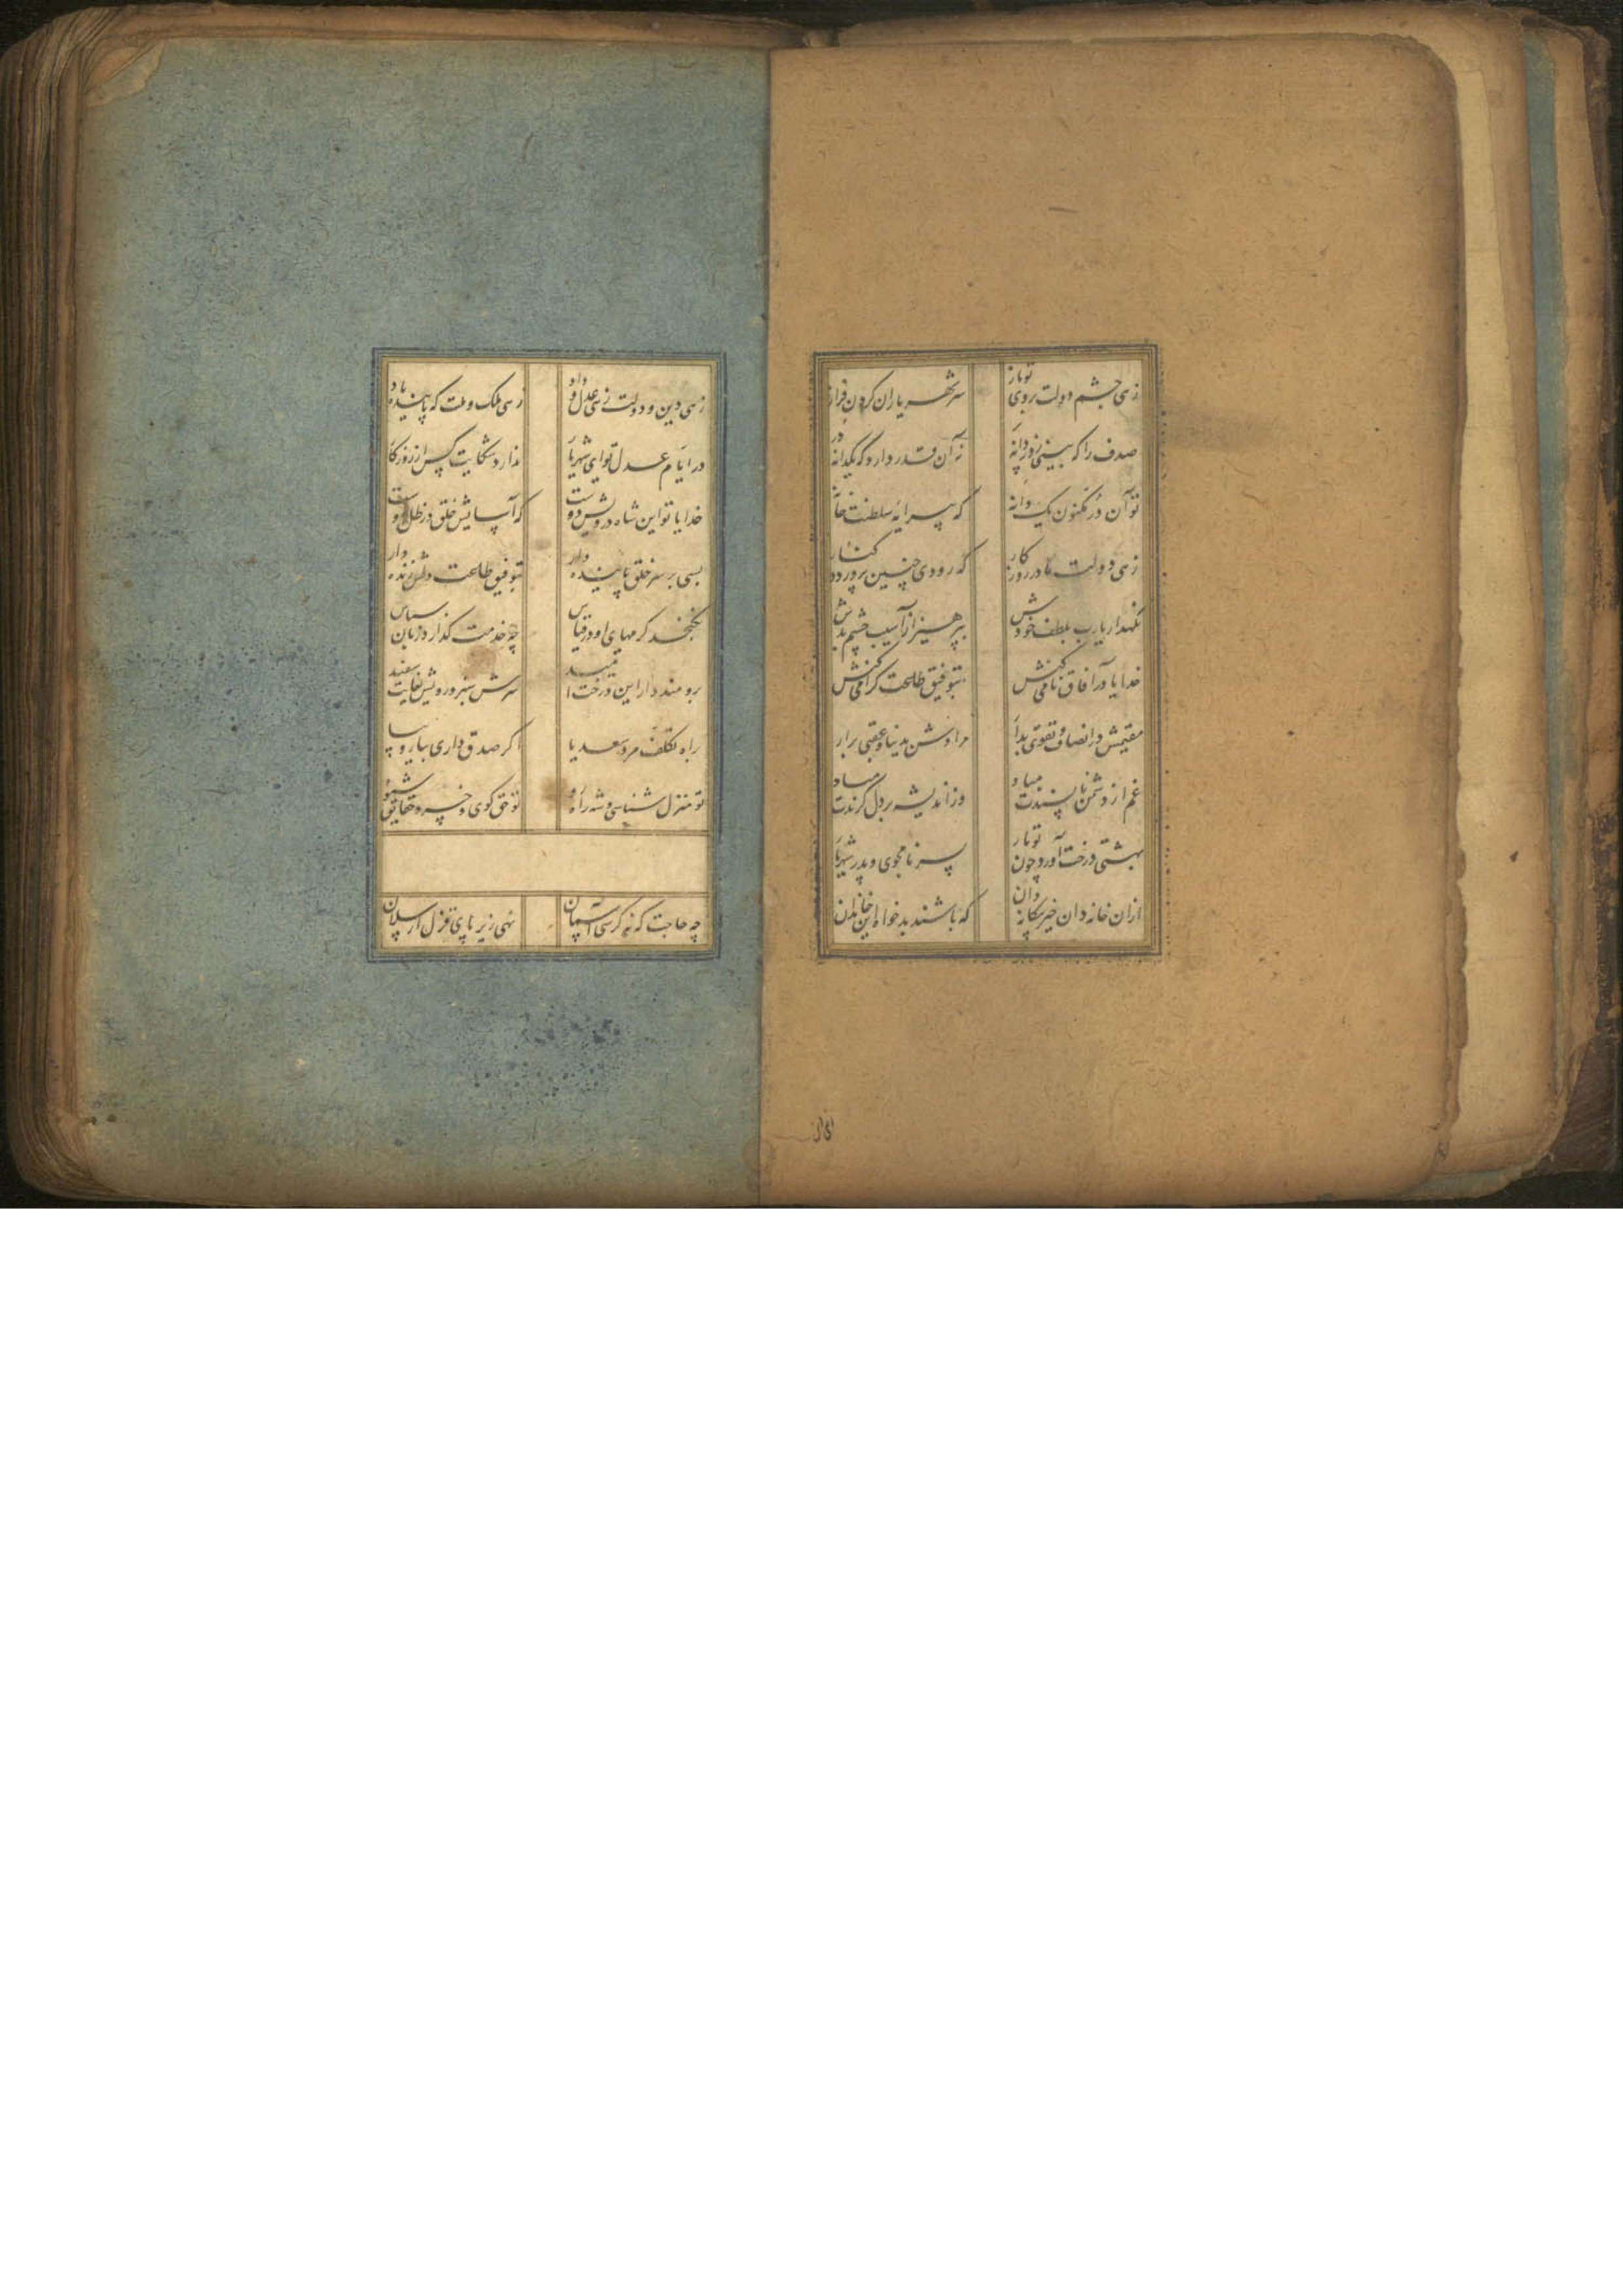 زهی چشم دولت بروی تو باز
سر شهریاران گردن فراز
صدف را که بینی ز دردانه پر
نه آن قدر دارد که یکدانه در
تو آن در مکنون یک دانه
که پیرایه سلطنت خانه
زهی دولت مادر روزکار
که رودی چنین پرورد در کنار
نکهدار یارب بلطف خودش
بپرهیز از آسیب چشم بدش
خدایا در آفاق نامی کنش
بتوفیق طاعت کرامی کنش
مقیمش در انصاف و تقوی بدار
مرادش بدنیا و عقبی برار
غم از دشمن ناپسندت مباد
وز اندیشه بر دل کزندت مباد
بهشتی درخت آورد چون تو بار
پسر نامجوی و پدر شهریار
ازان خاندان خیر بیکانه دان
که باشند بدخواه این خاندان
زهی دین و دولت زهی عدل و داد
زهی ملک و ملت که پاینده باد
در ایام عدل تو ای شهریار
ندارد شکایت کس از روزکار
خدایا تو این شاه درویش دوست
که آسایش خلق در ظل اوست
بسی بر سر خلق پاینده دار
بتوفیق طاعت دلش زنده دار
نکنجد کرمهای او در قیاس
چه خدمت کذارد زبان سپاس
برومند دار این درخت امید
سرش سبز و رویش سفید
براه تکلف مرو سعدیا
اکر صدق داری بیار و بیا
تو منزل شناسی و شه راه رو
تو حق کوی و خسرو حقایق شنو
چه حاجت که نه کرسی آسمان
نهی زیر پای قزل ارسلان